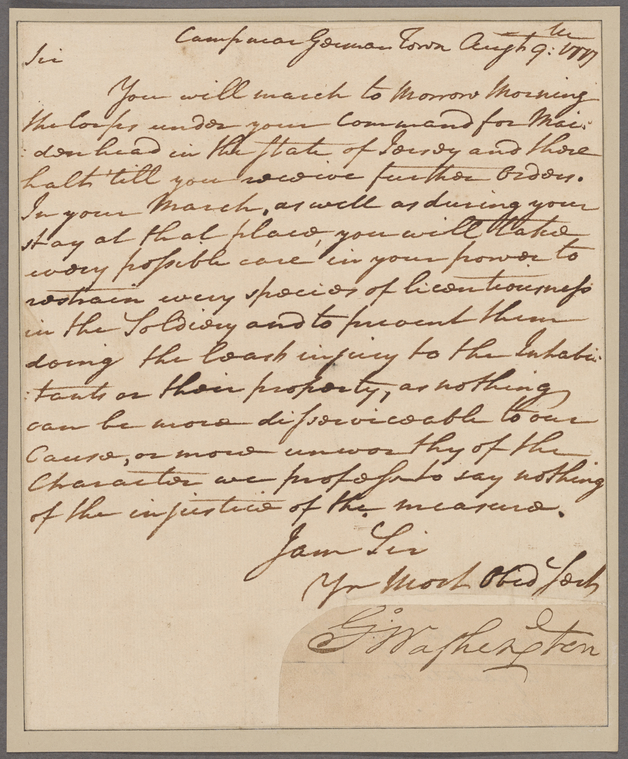 Camp near German Town Augt 9th: 1777
Sir
You will march to Morrow Morning
the Corps under your Command for Mai:
:denhead in the State of Jersey and there
halt till you receive further Orders.
In your March, as well as during your
stay at that place, you will take
every possible care in your power to
restrain every species of licentiousness
in the Soldiery and to prevent them
doing the least injury to the Inhabi:
:tants or their property, as nothing
can be more disserviceable to our
Cause, or more unworthy of the
Character we profess to say nothing
of the injustice of the measure.
I am Sir
Yr Most Obed Servt
Go Washington